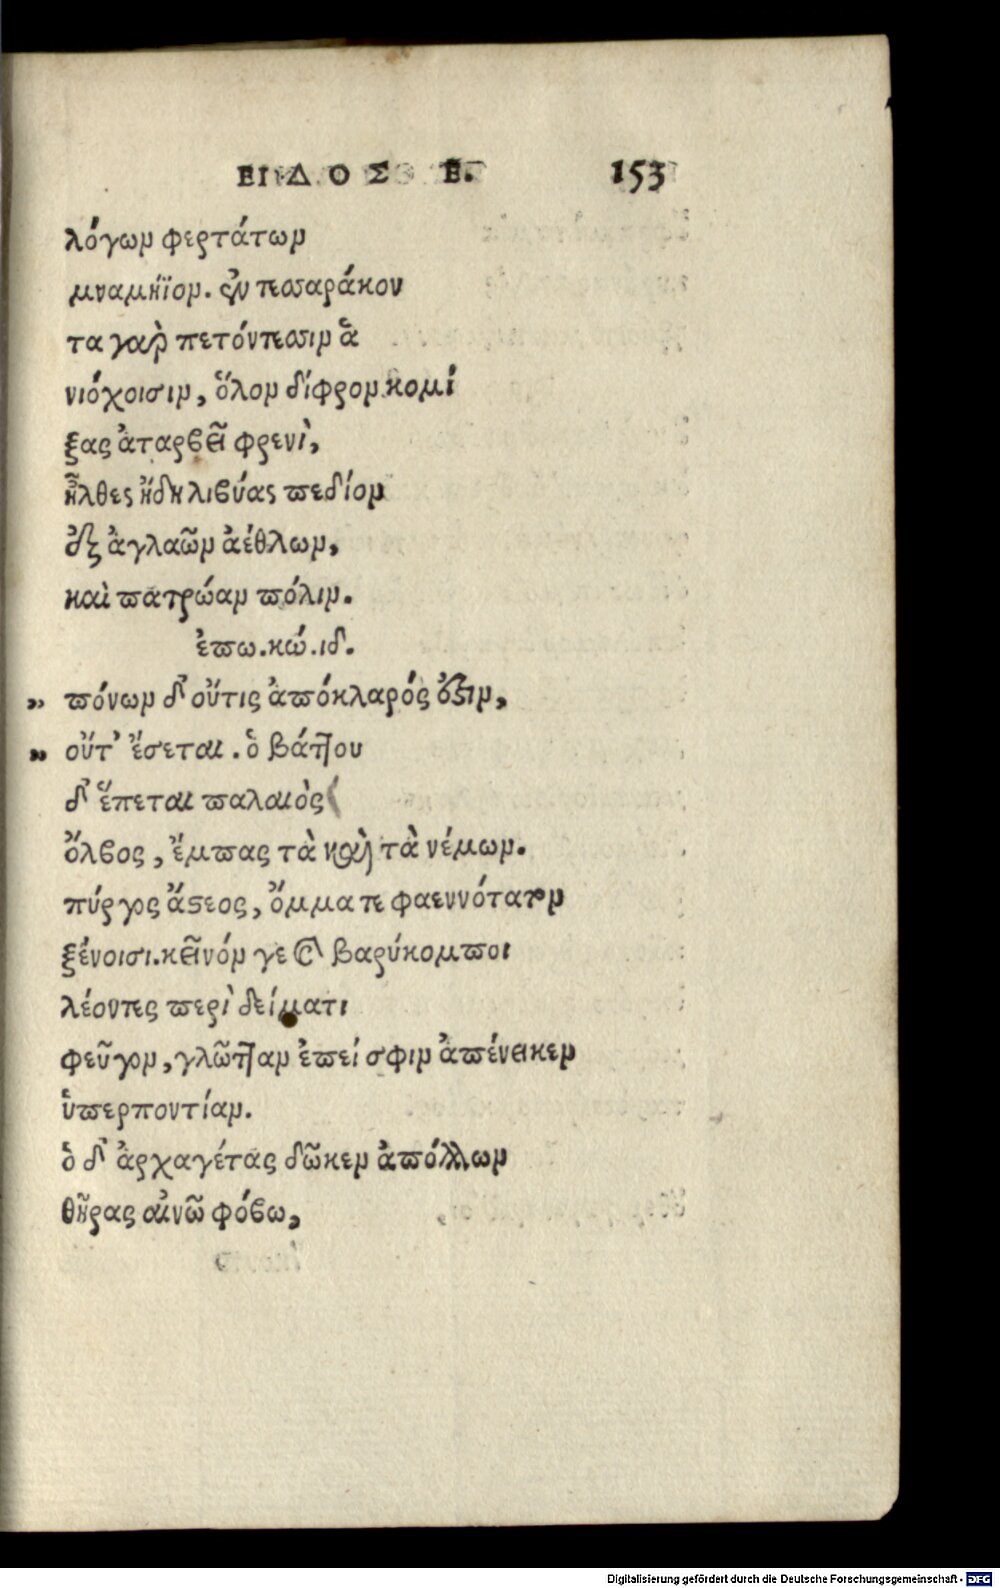 ΕΙΔΟΣ Ε. 153
λόγων φερτάτων
μναμήϊον. ἐν τεσσαράκον
τα γαὶρ πετόντεσσιν ἁ
νιόχοισιν, ὅλον δίφρον κομί
ξας ἀταρβεῖ φρενὶ,
ἦλθες ἤδη λιβύας πεδίον
ἐξ ἀγλαῶν ἀέθλων,
καὶ πατρώαν πόλιν.
ἐπω.κώ.ιδ.
„ πόνων δ' οὔτις ἀπόκλαρός ἐστιν,
„ οὔτ' ἔσεται. ὁ βάττου
δ' ἕπεται παλαιὸς
ὄλβος, ἔμπας τὰ καὶ τὰ νέμων.
πύργος ἄστεος, ὄμμα τε φαεννότατον
ξένοισι. κεῖνόν γε καὶ βαρύκομποι
λέοντες περὶ δείματι
φεῦγον, γλῶτταν ἐπεί σφιν ἀπένεικεν
ὑπερποντίαν.
ὁ δ' ἀρχαγέτας δῶκεν ἀπόλλων
θῆρας αἰνῶ φόβω,
Digitalisierung gefördert durch die Deutsche Forschungsgemeinschaft - DFG